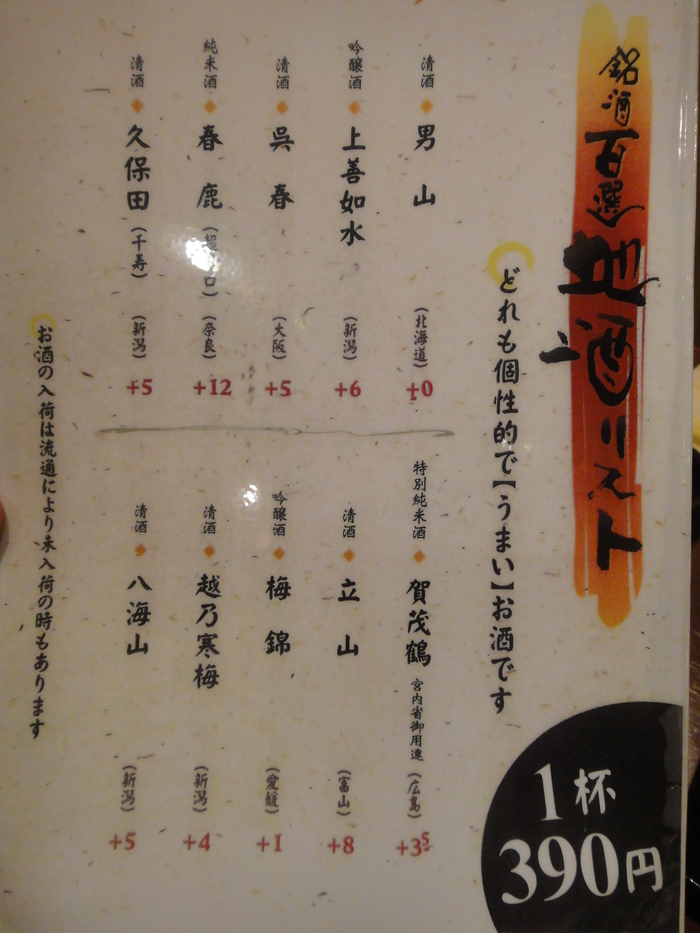 銘酒百選地酒リスト
どれも個性的で【うまい】お酒です
清酒 男山 (北海道) +0
吟醸酒 上善如水 (新潟) +6
清酒 呉春 (大阪) +5
純米酒 春鹿 (超 口) (奈良) +12
清酒 久保田 (千寿) (新潟) +5
特別純米酒 賀茂鶴 宮内省御用達 (広島) +3.5
清酒 立山 (富山) +8
吟醸酒 梅錦 (愛媛) +1
清酒 越乃寒梅 (新潟) +4
清酒 八海山 (新潟) +5
お酒の入荷は流通により未入荷の時もあります
1杯
390円